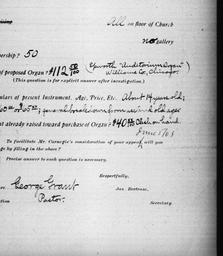 All on floor of Church
no gallery
bership? 50
of proposed Organ? $1120 00/100 (Epworth "Auditorium Organ"
Williams Co., Chicago.
(This question is for explicit answer after investigation.)
ulars of present Instrument. Age, Price, Etc. About 14 years old;
general breakdown from use and old age
nt already raised toward purchase of Organ? $40 00 Cash on hand.
June 5/03
To facilitate Mr. Carnegie's consideration of your appeal will you
ge by filling in the above?
Precise answer to each question is necessary.
Respectfully,
George Grant
Jas. Bertram,
Pastor.
Secretary